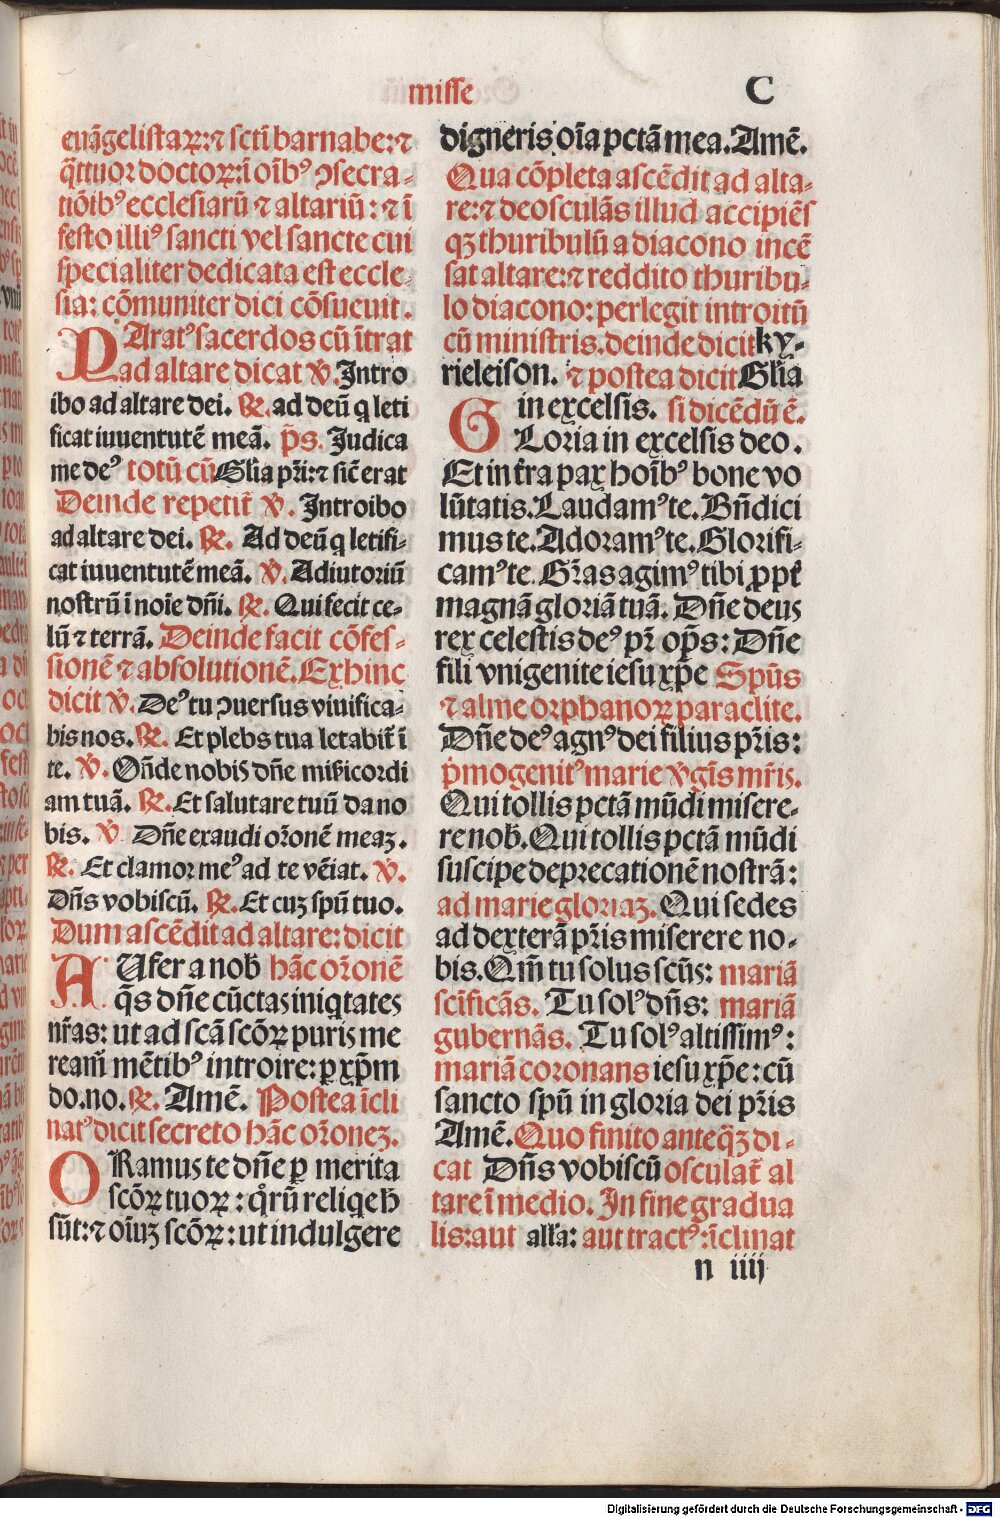 misse
C
euāgelistaꝝ: ⁊ scti barnabe: ⁊
q̄ttuor doctoꝝ: ī oībꝰ ꝯsecra-
tiōibꝰ ecclesiarū ⁊ altariū: ⁊ ī
festo illiꝰ sancti vel sancte cui
specialiter dedicata est eccle-
sia: cōmuniter dici cōsueuit.
PAratꝰ sacerdos cū ītrat
ad altare dicat ℣. Intro
ibo ad altare dei. ℟. ad deū q leti
ficat iuuentutē meā. p̄s. Judica
me deꝰ totū cū Glia pri: ⁊ sic erat
Deinde repetit ℣. Introibo
ad altare dei. ℟. Ad deū q letifi-
cat iuuentutē meā. ℣. Adiutoriū
nostrū ī noīe dn̄i. ℟. Qui fecit ce-
lū ⁊ terrā. Deinde facit cōfes-
sionē ⁊ absolutionē. Exhinc
dicit ℣. Deꝰ tu ꝯuersus viuifica-
bis nos. ℟. Et plebs tua letabit ī
te. ℣. On̄de nobis dn̄e mīsicordi
am tuā. ℟. Et salutare tuū da no
bis. ℣. Dn̄e exaudi or̄onē meaꝫ.
℟. Et clamor meꝰ ad te vēiat. ℣.
Dn̄s vobiscū. ℟. Et cuꝫ spū tuo.
Dum ascēdit ad altare: dicit
AUfer a nob hāc or̄onē
q̄s dn̄e cūctas iniqtates
nr̄as: ut ad scā scōꝝ puris me
ream̄ mētibꝰ introire: ꝑ xp̄m
do. no. ℟. Amē. Postea īcli
natꝰ dicit secreto hāc or̄oneꝫ.
ORamus te dn̄e ꝑ merita
scōꝝ tuoꝝ: qͦrū reliqe h
sūt: ⁊ oīuꝫ scōꝝ: ut indulgere
digneris oīa pctā mea. Amē.
Qua cōpleta ascēdit ad alta-
re: ⁊ deosculās illud accipiēs
qꝫ thuribulū a diacono incē
sat altare: ⁊ reddito thuribu-
lo diacono: perlegit introitū
cū ministris. deinde dicit ky-
rieleison. ⁊ postea dicit Glia
in excelsis. si dicēdū ē.
GLoria in excelsis deo.
Et in tr̄a pax hoībꝰ bone vo
lūtatis. Laudamꝰ te. Bn̄dici
mus te. Adoramꝰ te. Glorifi-
camꝰ te. Gr̄as agimꝰ tibi ꝓpt
magnā gloriā tuā. Dn̄e deus
rex celestis deꝰ pr̄ op̄s: Dn̄e
fili vnigenite iesu xp̄e Spūs
⁊ alme orphanoꝝ paraclite.
Dn̄e deꝰ agnꝰ dei filius pr̄is:
p̄mogenitꝰ marie v̓gīs mr̄is.
Qui tollis pctā mūdi misere-
re nob. Qui tollis pctā mūdi
suscipe deprecationē nostrā:
ad marie gloriaꝫ. Qui sedes
ad dexterā pr̄is miserere no-
bis. Qm̄ tu solus scūs: mariā
scīficās. Tu solꝰ dn̄s: mariā
gubernās. Tu solꝰ altissimꝰ:
mariā coronans iesu xp̄e: cū
sancto spū in gloria dei pr̄is
Amē. Quo finito anteqꝫ di-
cat Dn̄s vobiscū osculat al
tare ī medio. In fine gradua
lis: aut alla: aut tractꝰ: īclinat
n iiij
Digitalisierung gefördert durch die Deutsche Forschungsgemeinschaft - DFG